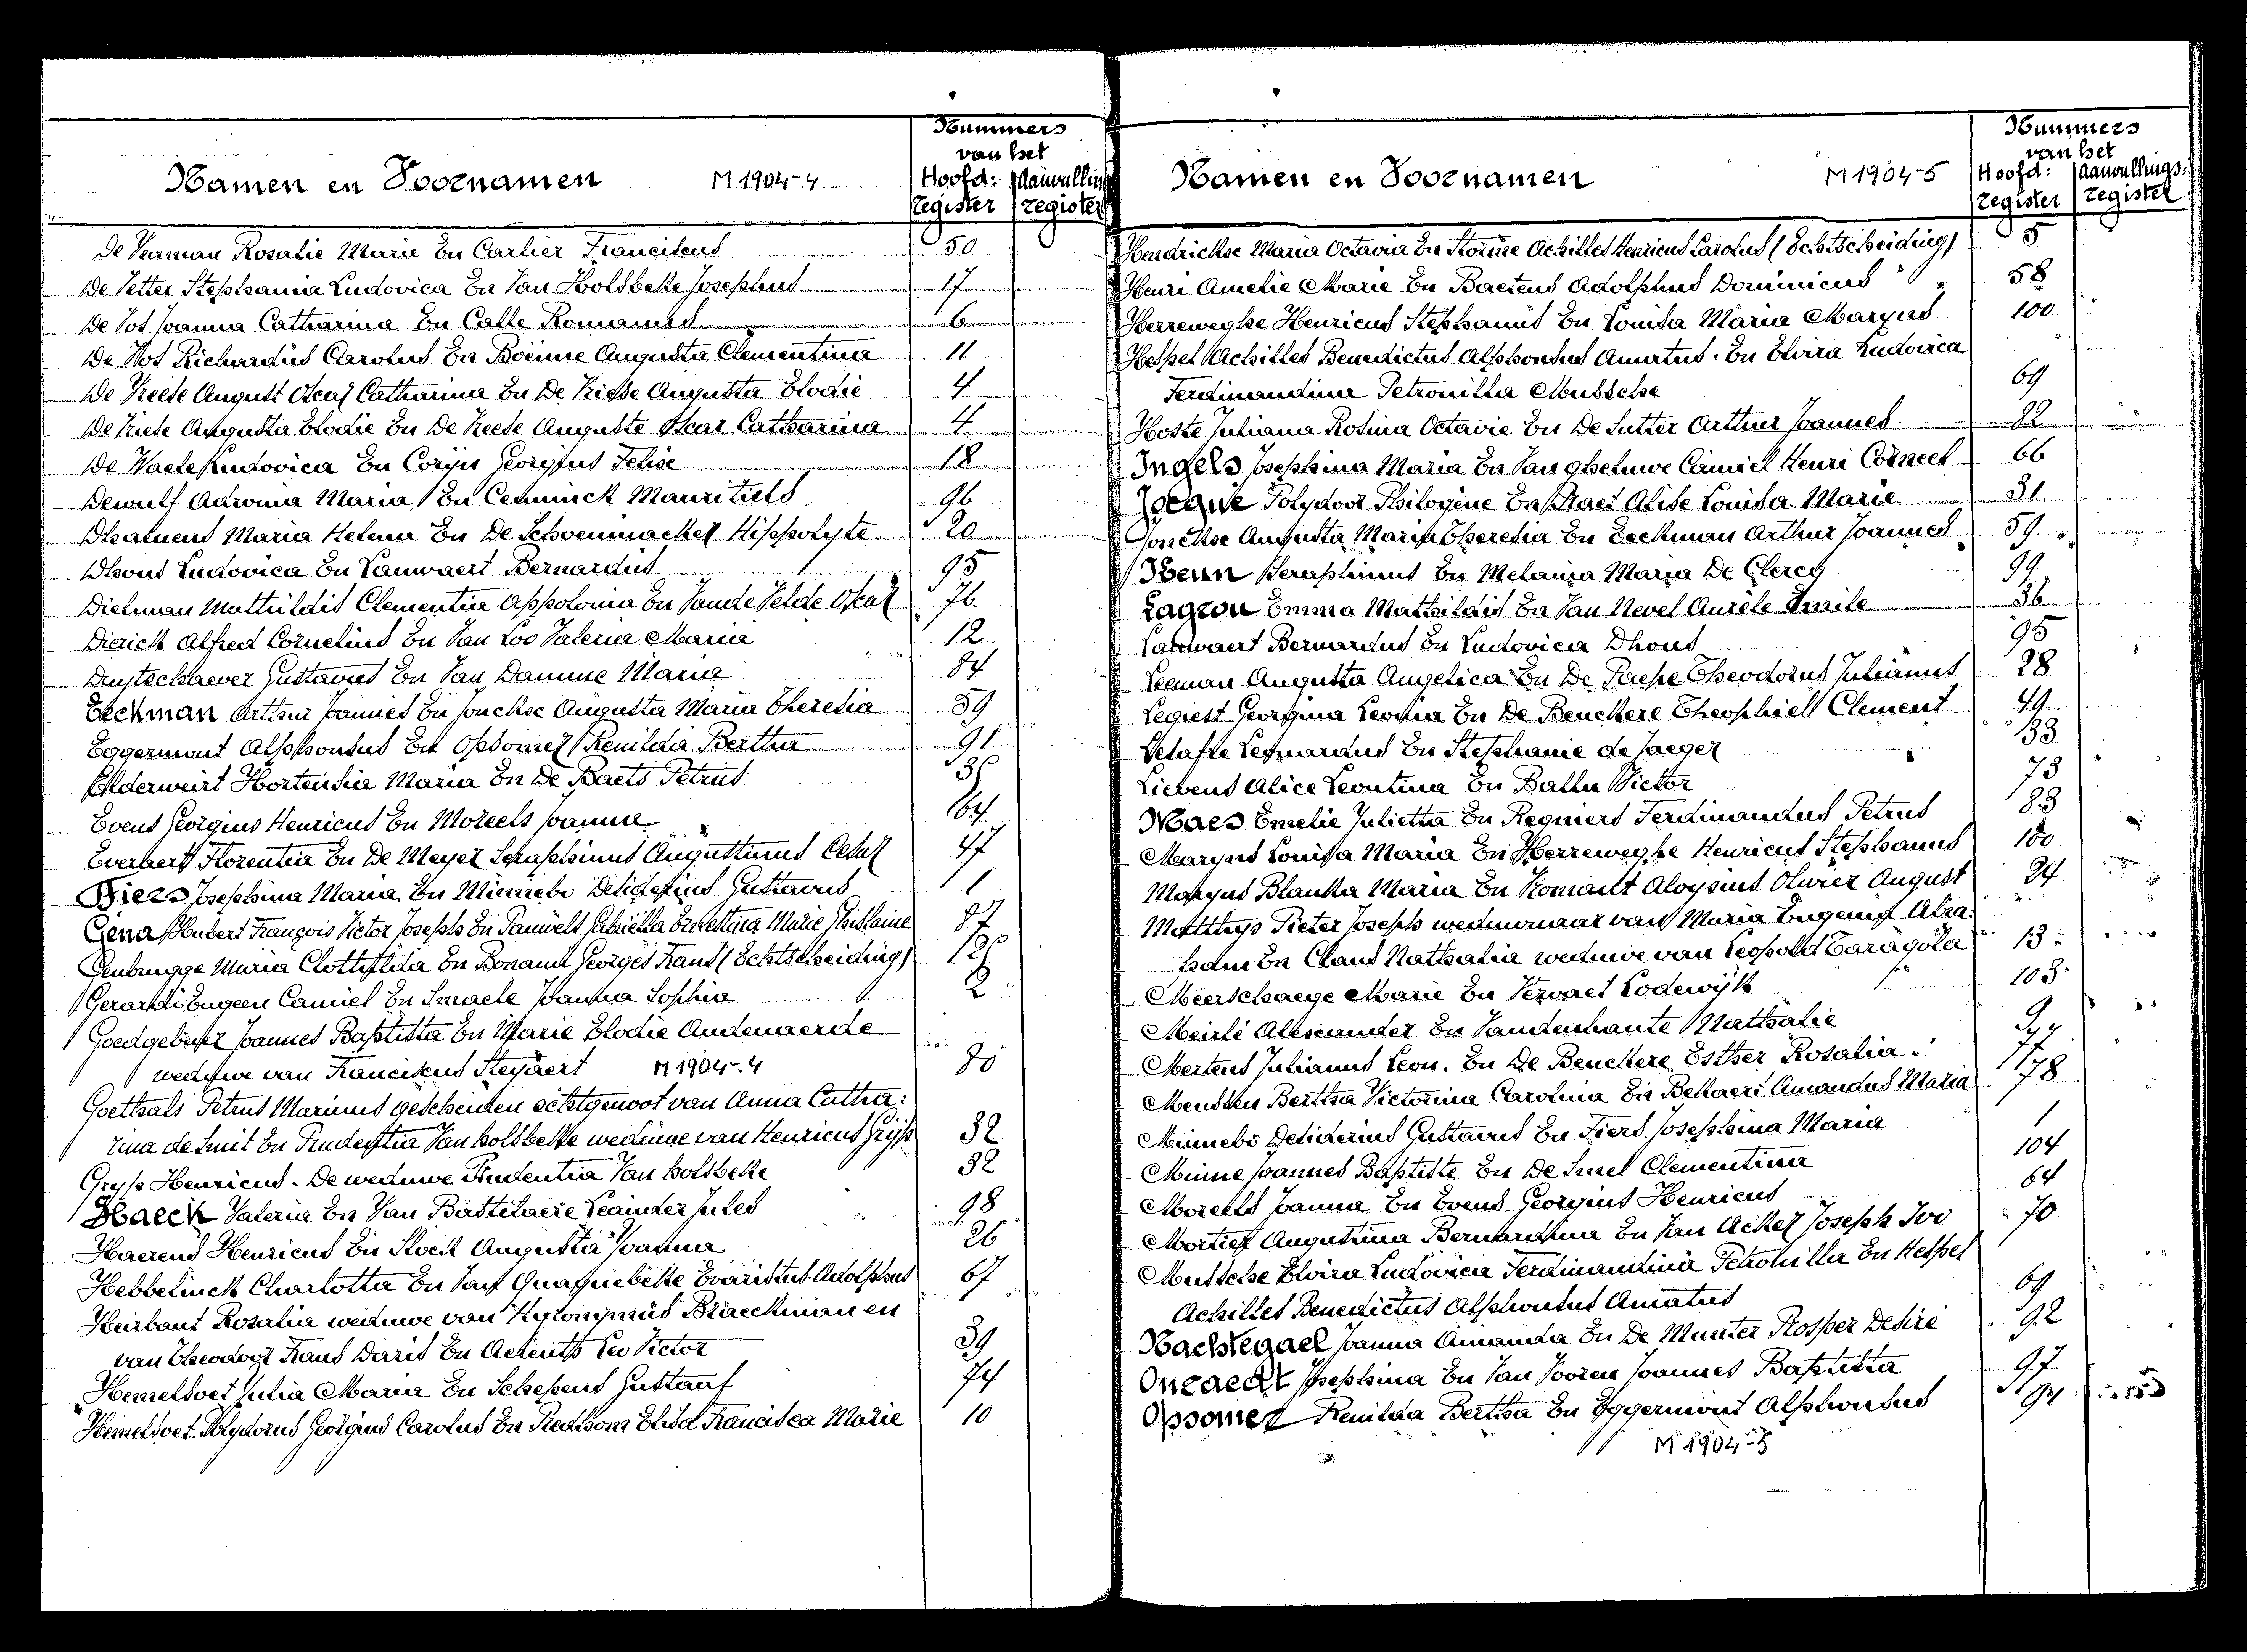 Nummers
van het
Namen en Voornamen M 1904-4 Hoofd: Aanvullin
register register
Rosalie Marie En Cartier Franciscus 50
De Vetter Stephania Ludovica En Van Holsbeke Josephus 17
De Vos Joanna Catharina En Calle Romanus 6
De Vos Richardus Carolus En Boeime Augusta Clementina 11
De Vreese August Oscar Catharina En De Vriese Augusta Elodie 4
De Vriese Augusta Elodie En De Vreese Auguste Oscar Catharina 4
De Waele Ludovica En Coryn Georgius Felix 18
Dewulf Adronia Maria En Ceuninck Mauritius 96
Dhaenens Maria Helena En De Schoenmacker Hippolyte 20
Dhont Ludovica En Lauwaert Bernardus 95
Dielman Mathildis Clementia Appolonia En Vande Velde Oscar 76
Dierick Alfred Cornelius En Van Loo Valeria Maria 12
Duytschaever Gustavus En Van Damme Maria 84
Eeckman Arthur Joannes En Jonckse Augusta Maria Theresia 59
Eggermont Alphonsus En Opsomer Renilda Bertha 91
Elderweirt Hortensia Maria En De Baets Petrus
Evens Georgius Henricus En Moreels Joanna 64
Everaert Florentia En De Meyer Seraphinus Augustinus Cesar 47
Fiers Josephina Maria En Minnebo Desiderius Gustavus 1
Gena Hubert François Victor Joseph En Pauwels Gabriella Ernestina Marie Ghislaine 87
Gentbrugge Maria Clothildia En Bonami Georges Frans (Echtscheiding)
Gerardi Eugeen Camiel En Smaele Joanna Sophia 2
Goedgebuer Joannes Baptista En Marie Elodie Audenaerde
weduwe van Franciscus Steyaert M 1904-4 80
Goethals Petrus Marinus gescheiden echtgenoot van Anna Catha:
rina de Smit En Prudentia Van holsbeke weduwe van Henricus Gryp 32
Gryp Henricus. De weduwe Prudentia Van holsbeke 32
Haeck Valeria En Van Bastelaere Leander Jules 98
Haerens Henricus En Slock Augusta Joanna 26
Hebbelinck Charlotta En Van Quaquebeke Evaristus Adolphus 67
Heirbaut Rosalia weduwe van Hyronymus Braeckman en
van Theodoor Frans Daris En Aekents Leo Victor 39
Hemelsoet Julia Maria En Schepens Gustaaf 74
Hemelsoet Polydorus Georgius Carolus En Elisa Francisca Marie 10
Nummers
van het
Namen en Voornamen M 1904-5 Hoofd: Aanvullings:
register register
Hendrickse Maria Octavia En Achilles Henricus Carolus (Echtscheiding) 5
Henri Amelie Marie En Baetens Adolphus Dominicus 58
Herreweghe Henricus Stephanus En Louisa Maria Maryns 100
Hespel Achilles Benedictus Alphonsus Amatus. En Elvira Ludovica
Ferdinandina Petronilla Mussche 69
Hoste Juliana Rosina Octavie En De Sutter Arthur Joannes 82
Ingels Josephina Maria En Van gheluwe Camiel Henri Corneel 66
Jocque Polydoor Philogène En Praet Alise Louisa Marie 31
Jonckse Augusta Maria Theresia En Eeckman Arthur Joannes 59
Kenn Seraphinus En Melania Maria De Clercq 99
Lagrou Emma Mathildis En Van Nevel Aurèle Emile 36
Lauwaert Bernardus En Ludovica Dhont 95
Leeman Augusta Angelica En De Paepe Theodorus Julianus 28
Legiest Georgina Leonia En De Beuckere Theophiel Clement 49
Leonardus En Stephanie de Jaeger 33
Lievens Alice Leontina En Ballu Victor 73
Maes Emelie Julietta En Regniers Ferdinandus Petrus 83
Maryns Louisa Maria En Herreweghe Henricus Stephanus 100
Maryns Blanka Maria En Romant Aloysius Olivier August 24
Matthys Pieter Joseph weduwnaar van Maria Eugenia Abra:
ham En Claus Nathalia weduwe van Leopold Taragola 13
Meerschaege Marie En Vervaet Lodewijk 103
Meirli Alexander En Vandenhaute Nathalie 9
Mertens Julianus Leon. En De Beuckere Esther Rosalia. 77
Meuskens Bertha Victorina Carolina En Bekaert Amandus Maria 78
Minnebo Desiderius Gustavus En Fiers Josephina Maria 1
Minne Joannes Baptiste En De Smet Clementina 104
Moreels Joanna En Evens Georgius Henricus 64
Mortier Augustina Bernardina En Van Acker Joseph Ivo 70
Mussche Elvira Ludovica Ferdinandina Petronilla En Hespel
Achilles Benedictus Alphonsus Amatus 69
Nachtegael Joanna Amanda En De Munter Prosper Desiré 92
Onraedt Josephina En Van Vooren Joannes Baptista 97
Opsomer Renilda Bertha En Eggermont Alphonsus 94
M 1904-5